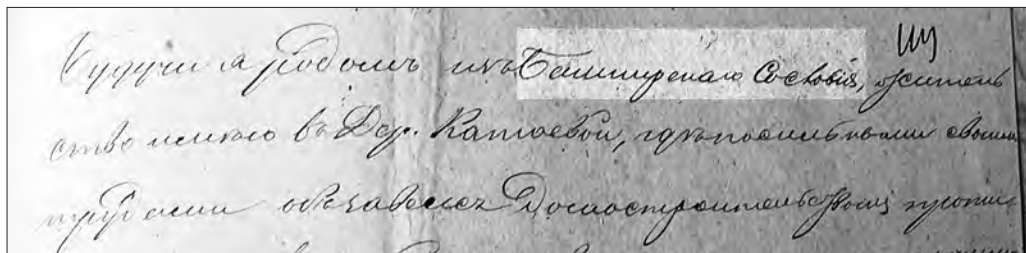 Будучи я родомъ изъ Башкирскаго Сословія, житель
ство имѣю въ Дер. Катаевой, гдѣ посильными своими
трудами обзавелся Домостроительствомъ